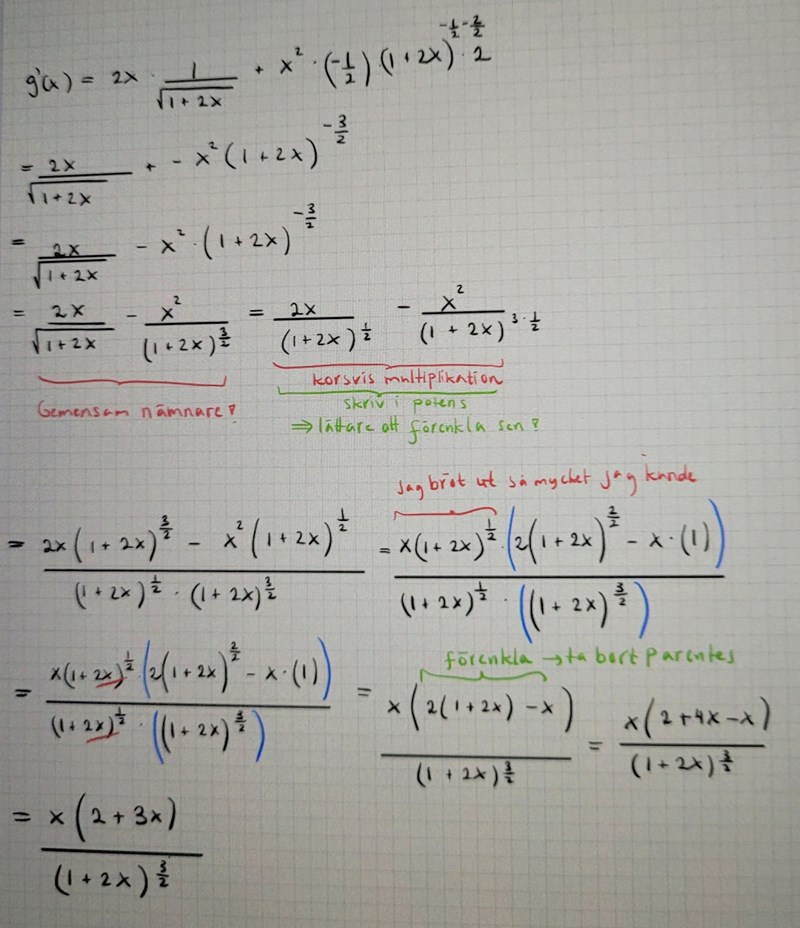 g'(x) = 2x · 1/√(1+2x) + x² · (-1/2)(1+2x)^(-1/2-2/2) · 2
= 2x/√(1+2x) + - x²(1+2x)^(-3/2)
= 2x/√(1+2x) - x² · (1+2x)^(-3/2)
= 2x/√(1+2x) - x²/(1+2x)^(3/2) = 2x/(1+2x)^(1/2) - x²/(1+2x)^(3·1/2)
Gemensam nämnare?
korsvis multiplikation
skriv i potens
⇒ lättare att förenkla sen?
jag bröt ut så mycket jag kunde
= (2x(1+2x)^(3/2) - x²(1+2x)^(1/2))/((1+2x)^(1/2) · (1+2x)^(3/2)) = (x(1+2x)^(1/2) · (2(1+2x)^(2/2) - x·(1)))/((1+2x)^(1/2) · ((1+2x)^(3/2)))
förenkla → ta bort parentes
= (x(1+2x)^(1/2) · (2(1+2x)^(2/2) - x·(1)))/((1+2x)^(1/2) · ((1+2x)^(3/2))) = x(2(1+2x) - x)/(1+2x)^(3/2) = x(2+4x-x)/(1+2x)^(3/2)
= x(2+3x)/(1+2x)^(3/2)